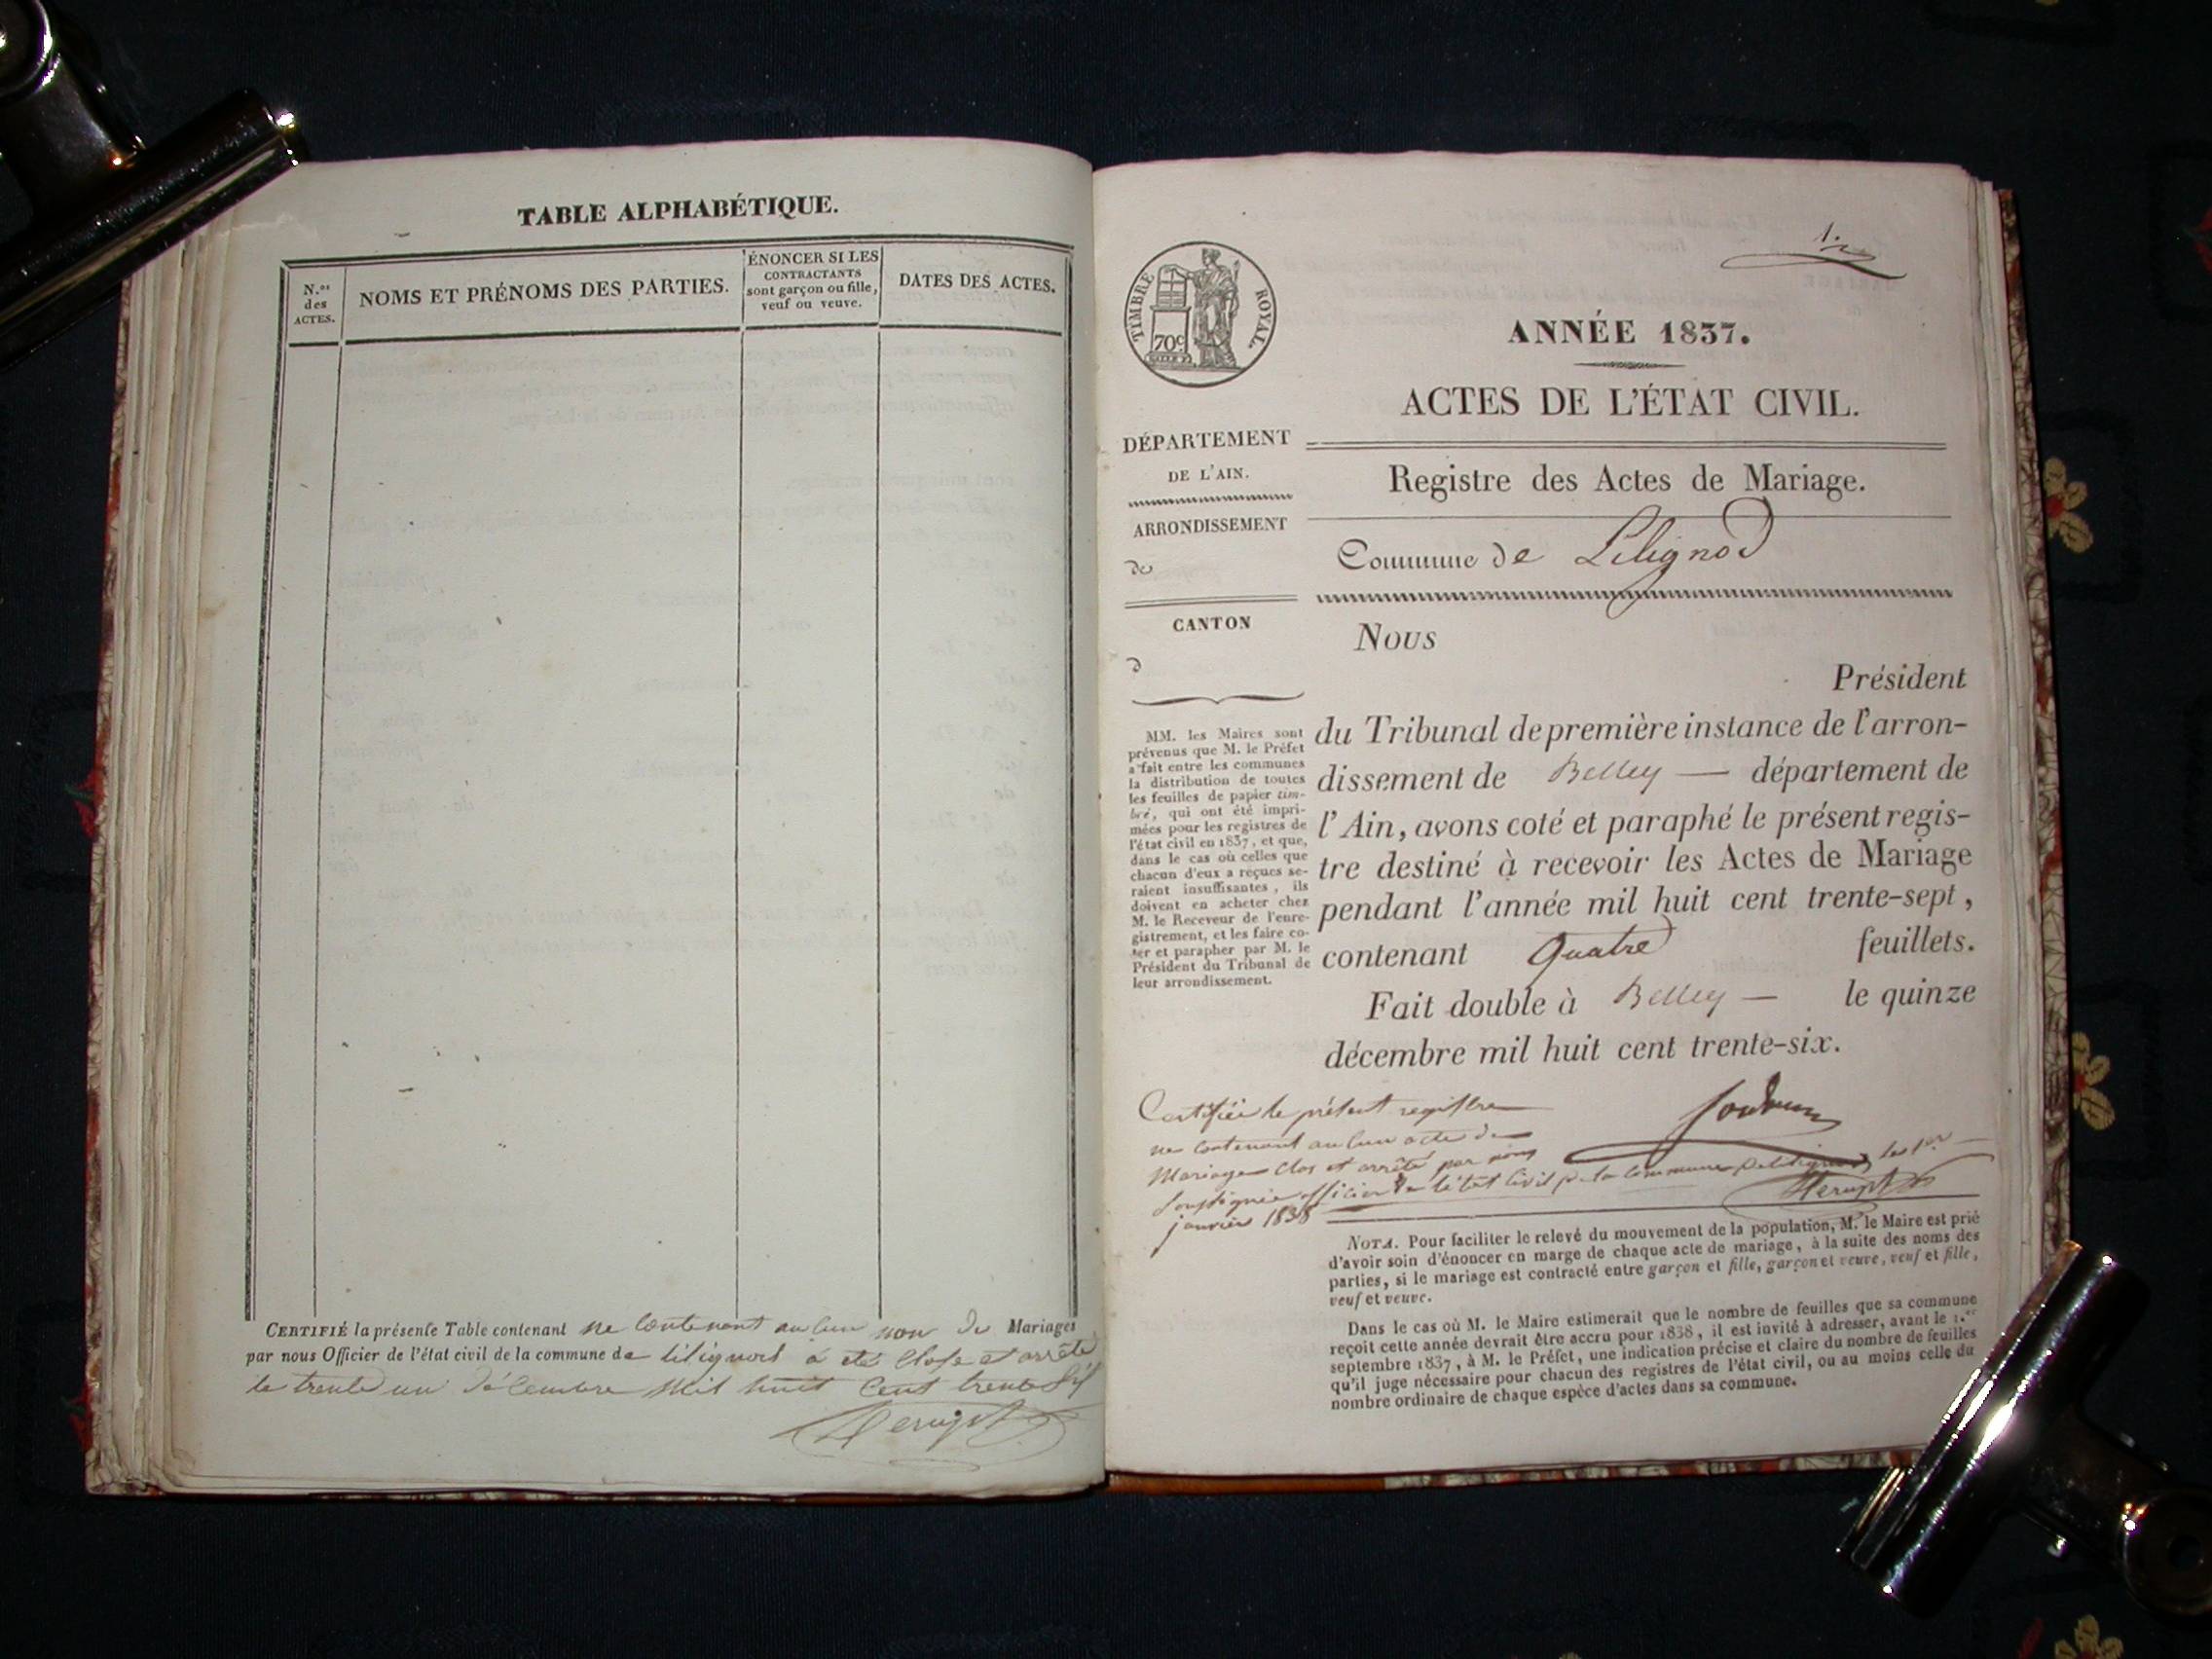 TABLE ALPHABÉTIQUE.
N.os des ACTES.
NOMS ET PRÉNOMS DES PARTIES.
ÉNONCER SI LES
CONTRACTANTS
sont garçon ou fille,
veuf ou veuve.
DATES DES ACTES.
CERTIFIÉ la présente Table contenant ne contenant aucun nom de Mariages
par nous Officier de l'état civil de la commune de lilignod a été close et arrêté
le trente un décembre mil huit cent trente six
1.
TIMBRE ROYAL.
70c
ANNÉE 1837.
ACTES DE L'ÉTAT CIVIL.
DÉPARTEMENT
DE L'AIN.
ARRONDISSEMENT
de
CANTON
d
MM. les Maires sont
prévenus que M. le Préfet
a fait entre les communes
la distribution de toutes
les feuilles de papier tim-
bré, qui ont été impri-
mées pour les registres de
l'état civil en 1837, et que,
dans le cas où celles que
chacun d'eux a reçues se-
raient insuffisantes, ils
doivent en acheter chez
M. le Receveur de l'enre-
gistrement, et les faire co-
ter et parapher par M. le
Président du Tribunal de
leur arrondissement.
Registre des Actes de Mariage.
Commune de Lilignod
Nous
Président
du Tribunal de première instance de l'arron-
dissement de Belley — département de
l'Ain, avons coté et paraphé le présent regis-
tre destiné à recevoir les Actes de Mariage
pendant l'année mil huit cent trente-sept,
contenant Quatre feuillets.
Fait double à Belley — le quinze
décembre mil huit cent trente-six.
Certifié le présent registre
ne contenant aucun acte de
Mariage clos et arrêté par nous
Soussigné officier de l'état Civil de la commune de lilignod le 1er
janvier 1838
NOTA. Pour faciliter le relevé du mouvement de la population, M. le Maire est prié
d'avoir soin d'énoncer en marge de chaque acte de mariage, à la suite des noms des
parties, si le mariage est contracté entre garçon et fille, garçon et veuve, veuf et fille,
veuf et veuve.
Dans le cas où M. le Maire estimerait que le nombre de feuilles que sa commune
reçoit cette année devrait être accru pour 1838, il est invité à adresser, avant le 1.er
septembre 1837, à M. le Préfet, une indication précise et claire du nombre de feuilles
qu'il juge nécessaire pour chacun des registres de l'état civil, ou au moins celle du
nombre ordinaire de chaque espèce d'actes dans sa commune.